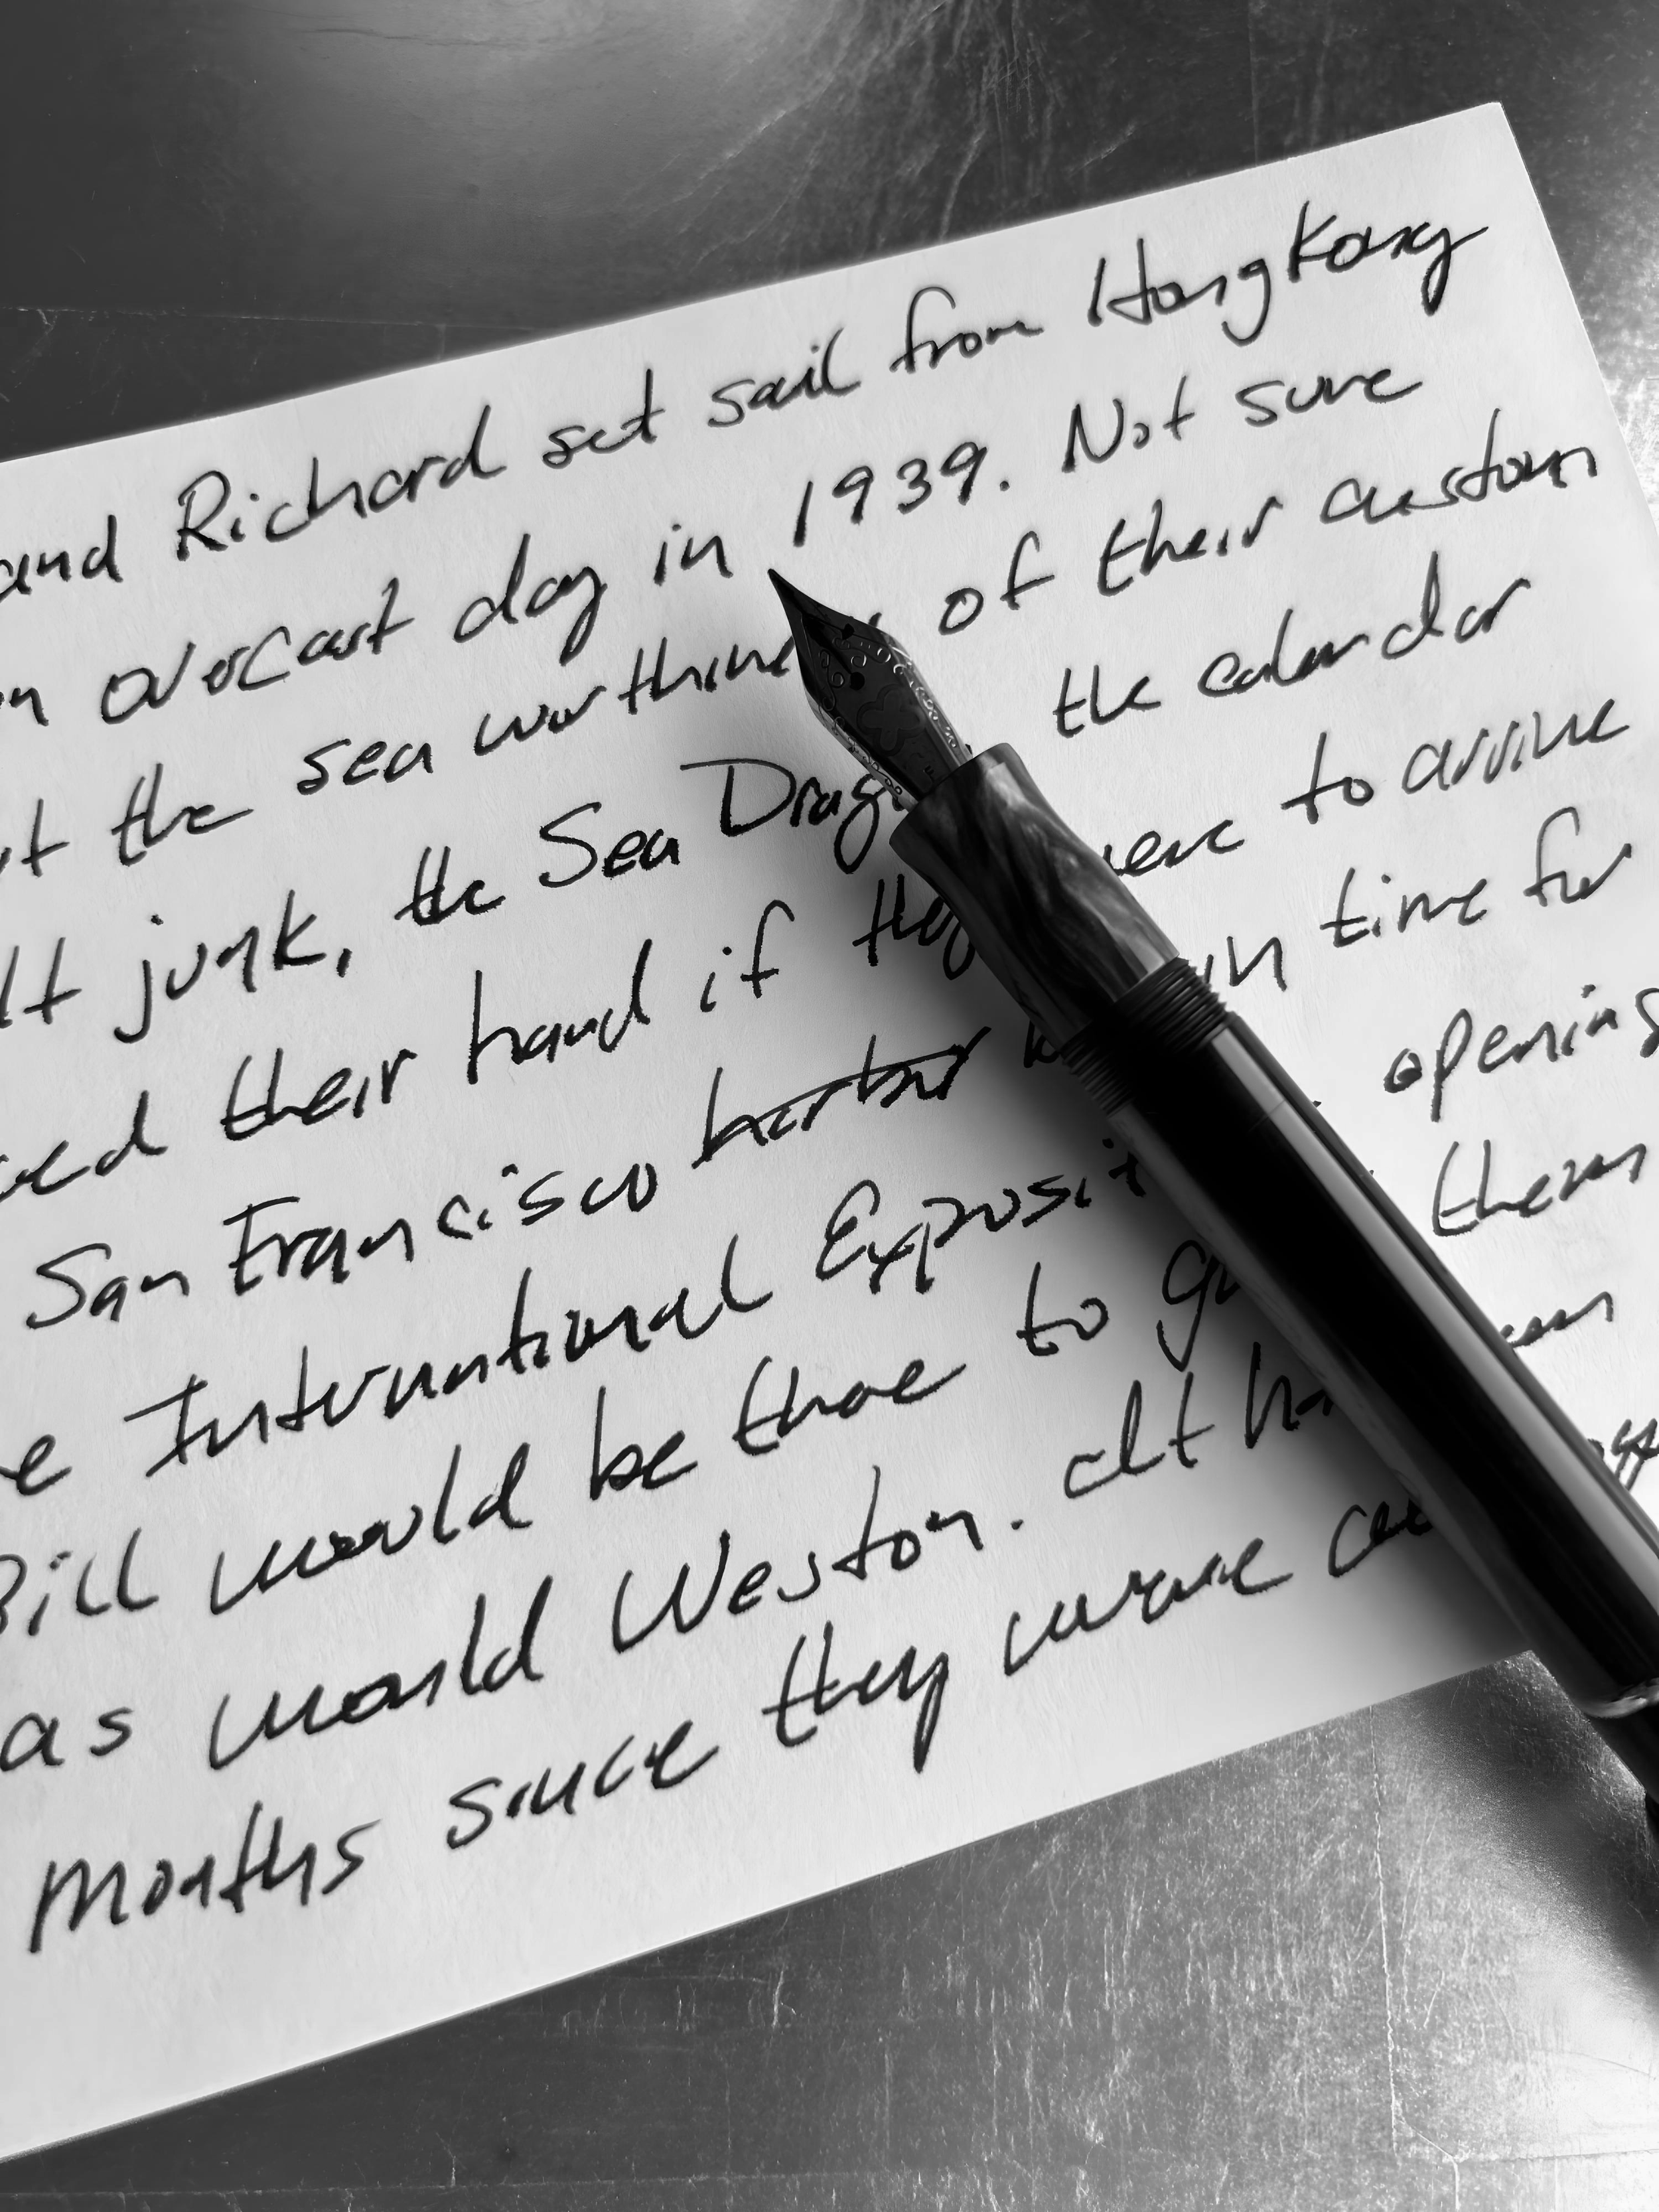 and Richard set sail from HongKong
an overcast day in 1939. Not sure
the sea worthiness of their custom
junk, the Sea Dragon the calendar
their hand if they were to arrive
San Francisco harbor in time for
International Exposit opening
Bill would be there to them
as would Weston. It
months since they were